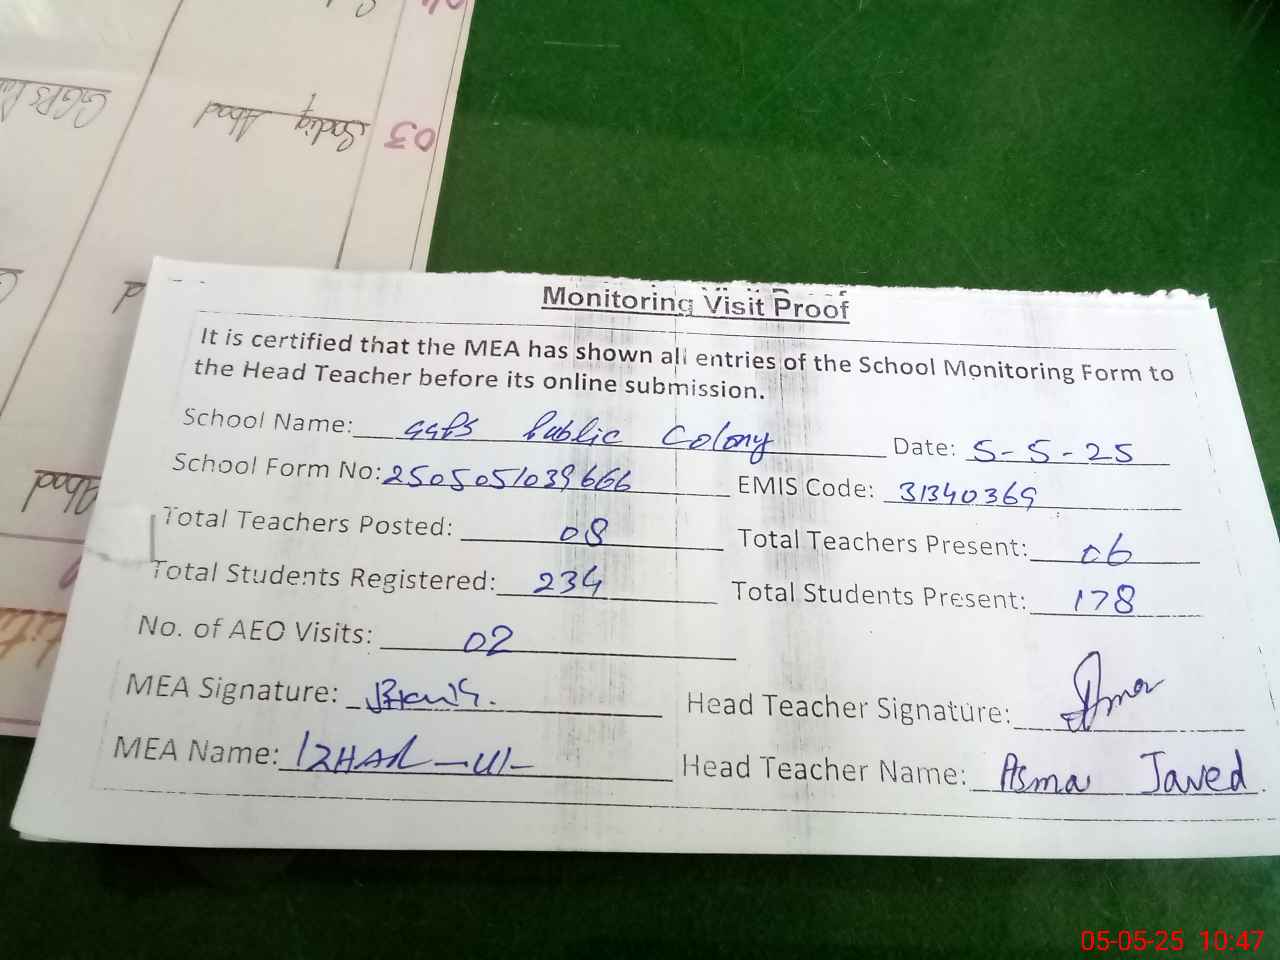 03
Sadiq Abad
Monitoring Visit Proof
It is certified that the MEA has shown all entries of the School Monitoring Form to
the Head Teacher before its online submission.
School Name: GGPS Public Colony Date: 5-5-25
School Form No: 2505051039666 EMIS Code: 31340369
Total Teachers Posted: 08 Total Teachers Present: 06
Total Students Registered: 234 Total Students Present: 178
No. of AEO Visits: 02
MEA Signature: Head Teacher Signature: Asma
MEA Name: IZHAR-Ul- Head Teacher Name: Asma Javed
05-05-25 10:47